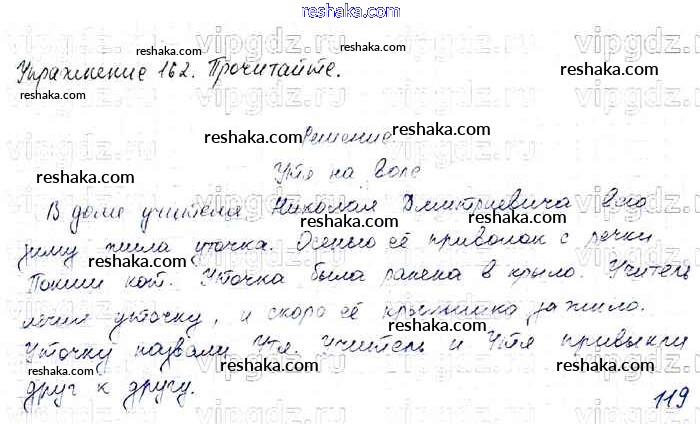 reshaka.com
Упражнение 162. Прочитайте.
Решение
Утя на воле
В доме учителя Николая Дмитриевича всю
зиму жила уточка. Осенью её приволок с речки
кот. Уточка была ранена в крыло. Учитель
лечил уточку, и скоро её крылышко зажило.
Уточку назвали Утя. Учитель и Утя привыкли
друг к другу.
119